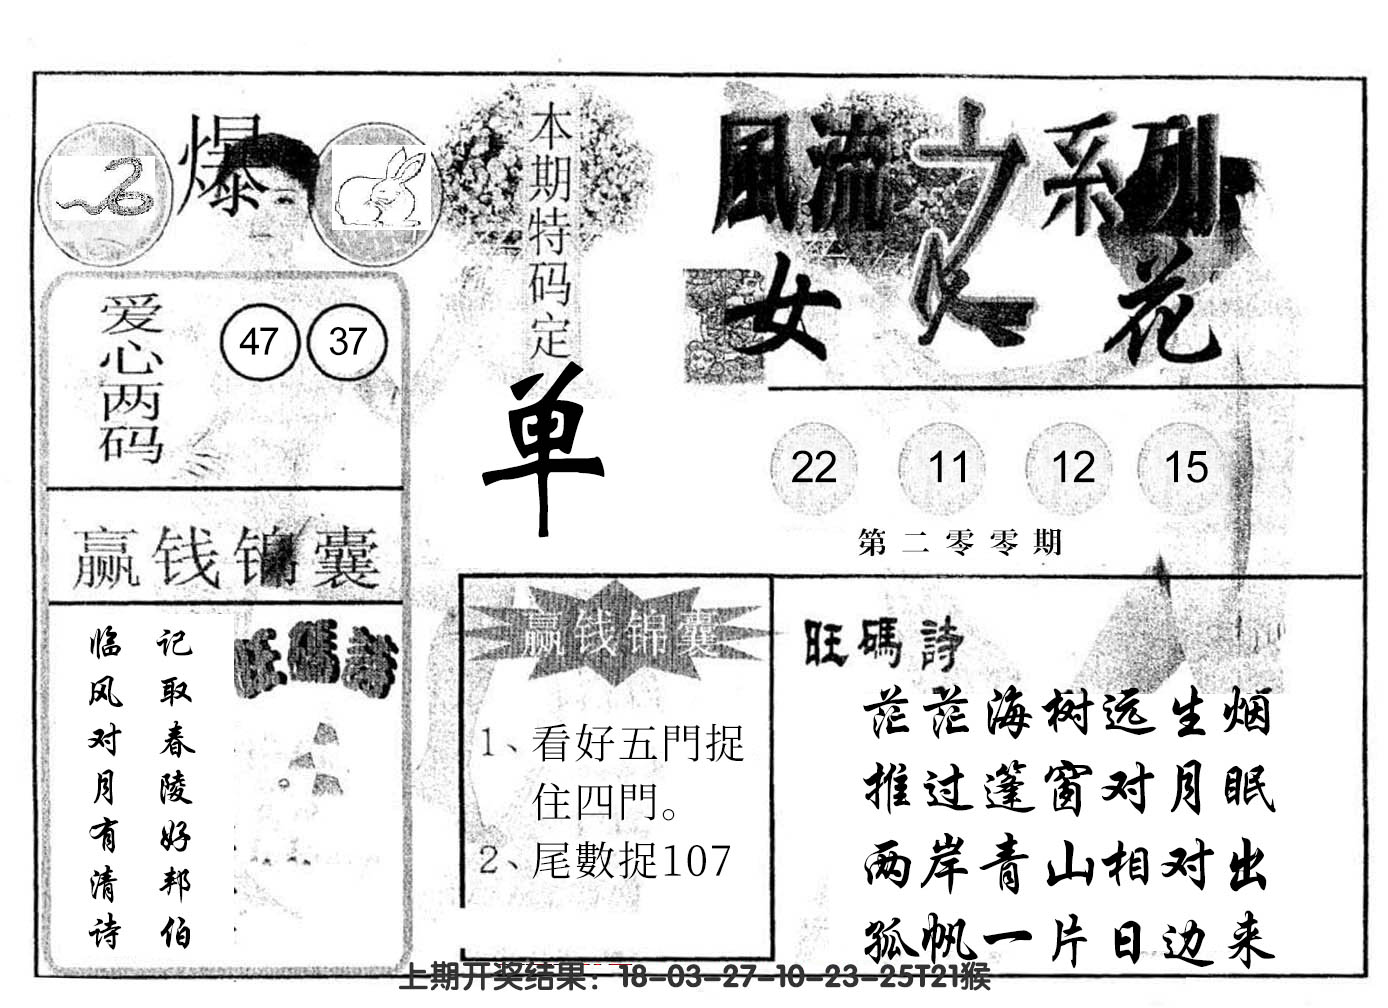 爆
爱心两码
47 37
赢钱锦囊
记取春陵好邦伯
临风对月有清诗
旺碼詩
本期特码定
单
風流之系列
女人花
22 11 12 15
第二零零期
赢钱锦囊
1、看好五門捉
住四門。
2、尾數捉107
旺碼詩
茫茫海树远生烟
推过篷窗对月眠
两岸青山相对出
孤帆一片日边来
上期开奖结果：18-03-27-10-23-25T21猴